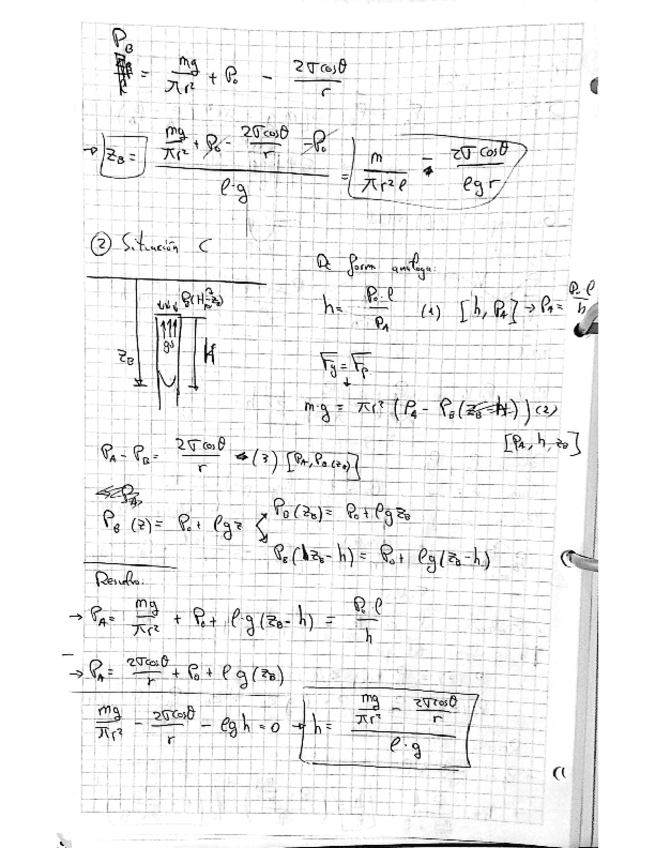 P_B = mg/πr² + P₀ - 2σcosθ/r
→ z_B = (mg/πr² + P₀ - 2σcosθ/r - P₀)/(ρ·g) = m/πr²ρ - 2σcosθ/ρgr
② Situación C
De forma análoga:
h = P₀·l/P_A (1) [h, P_A] → P_A = P₀·l/h
z_B
gas
H
F_g = F_p
m·g = πr² (P_A - P_B( )) (2)
[P_A, h, z_B]
P_A - P_B = 2σcosθ/r (3) [P_A, P_B(z_B)]
P_B(z) = P₀ + ρgz
P_B(z_B) = P₀ + ρgz_B
P_B(z_B - h) = P₀ + ρg(z_B - h)
Resulto.
→ P_A = mg/πr² + P₀ + ρ·g(z_B - h) = P₀·l/h
→ P_A = 2σcosθ/r + P₀ + ρg(z_B)
mg/πr² - 2σcosθ/r - ρgh = 0 → h = (mg/πr² - 2σcosθ/r)/(ρ·g)